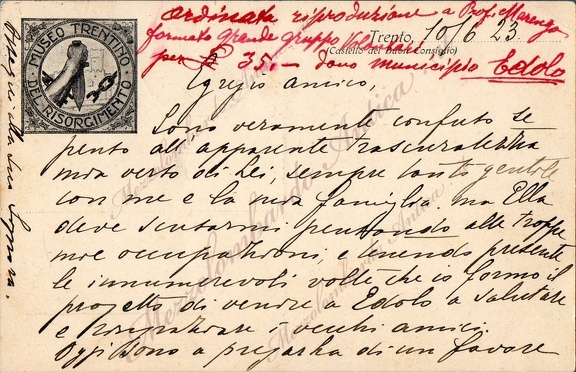 Ordinata riproduzione a Prof. Marenzi
formato grande gruppo
per £ 35.- dono municipio Edolo
MUSEO TRENTINO
DEL RISORGIMENTO
Trento, 10/6 23
(Castello del Buonconsiglio)
Egregio amico,
Sono veramente confuso se
penso all'apparente trascuratezza
mia verso di Lei, sempre tanto gentile
con me e la mia famiglia. ma Ella
deve scusarmi pensando alle troppe
mie occupazioni, e tenendo presente
le innumerevoli volte che io formo il
progetto di venire a Edolo a salutare
e ringraziare i vecchi amici.
Oggi sono a pregarla di un favore
Ossequi alla sua Signora.
Mezzolombardo Antica